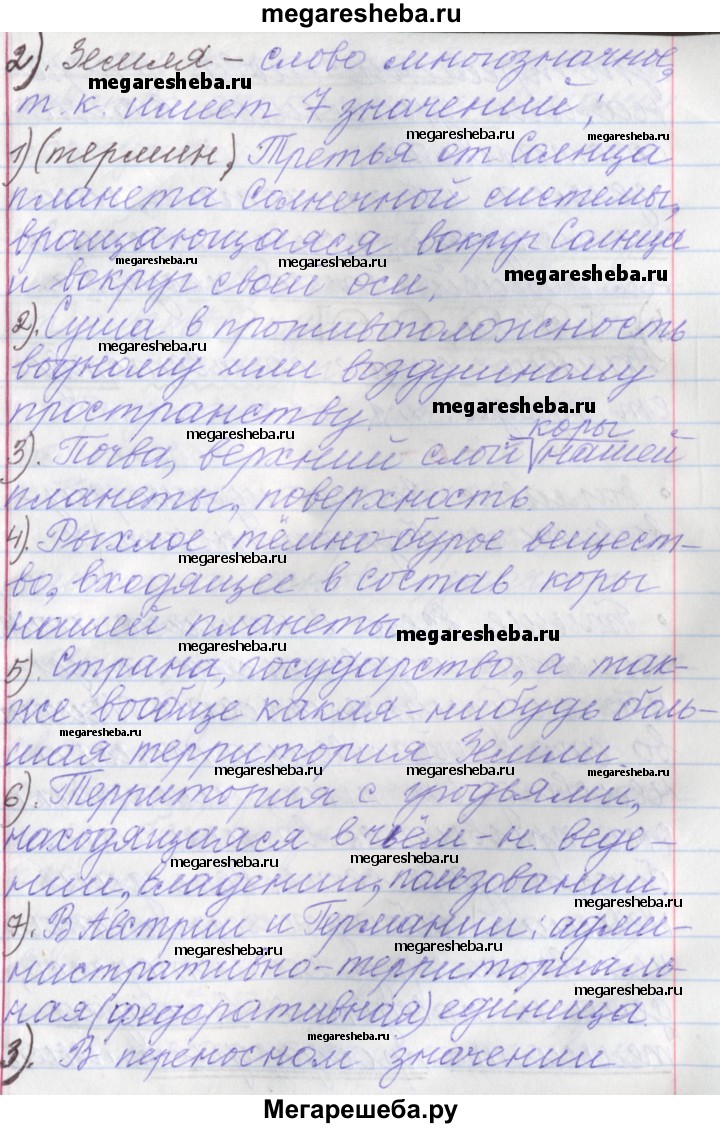 megaresheba.ru
2). Земля – слово многозначное,
megaresheba.ru
т. к. имеет 7 значений:
megaresheba.ru
megaresheba.ru
1) (термин) Третья от Солнца
планета Солнечной системы,
вращающаяся вокруг Солнца
megaresheba.ru
megaresheba.ru
и вокруг своей оси.
2). Суша в противоположность
megaresheba.ru
водному или воздушному
megaresheba.ru
пространству.
megaresheba.ru
коры
3). Почва, верхний слой нашей
планеты, поверхность.
4). Рыхлое тёмно-бурое вещест-
megaresheba.ru
во, входящее в состав коры
нашей планеты
megaresheba.ru
megaresheba.ru
5). Страна, государство, а так-
же вообще какая-нибудь боль-
megaresheba.ru
шая территория Земли.
megaresheba.ru
megaresheba.ru
megaresheba.ru
6). Территория с угодьями,
находящаяся в чьём-н. веде-
megaresheba.ru
megaresheba.ru
нии, владении, пользовании.
megaresheba.ru
7). В Австрии и Германии: адми-
megaresheba.ru
megaresheba.ru
нистративно-территориаль-
megaresheba.ru
ная (федеративная) единица.
megaresheba.ru
3). В переносном значении
Мегарешеба.ру